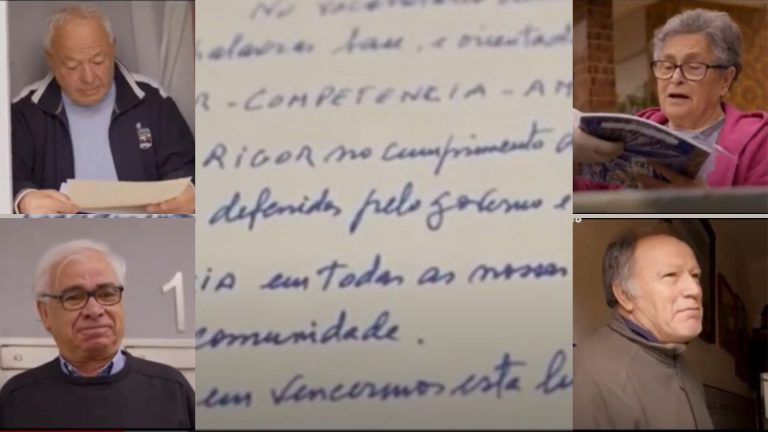 No vocabulário
palavras base, e orientad
R - COMPETENCIA - AM
RIGOR no cumprimento d
definidas pelo governo e
CIA em todas as nossas
comunidade.
em vencermos esta lu
1
43